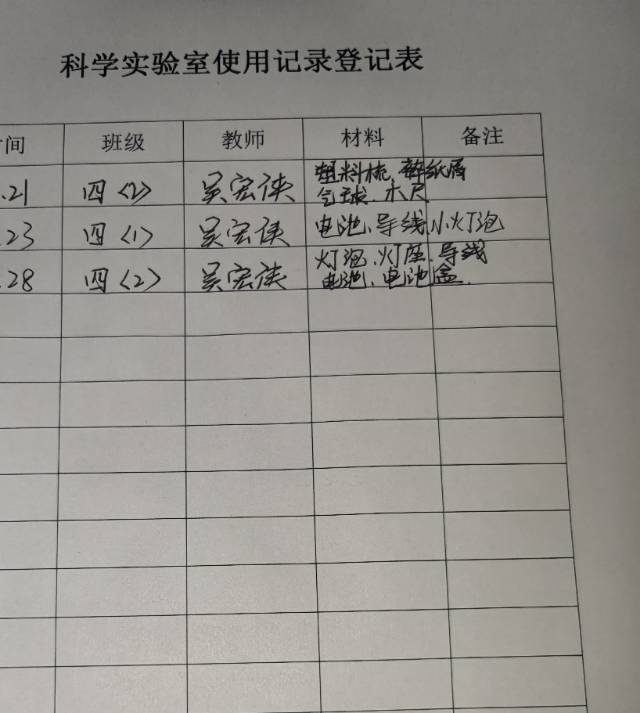 科学实验室使用记录登记表
间 班级 教师 材料 备注
.21 四<2> 吴宏侠 塑料梳、碎纸屑
气球、木尺
.23 四<1> 吴宏侠 电池、导线、小灯泡
.28 四<2> 吴宏侠 灯泡、灯座、导线
电池、电池盒.